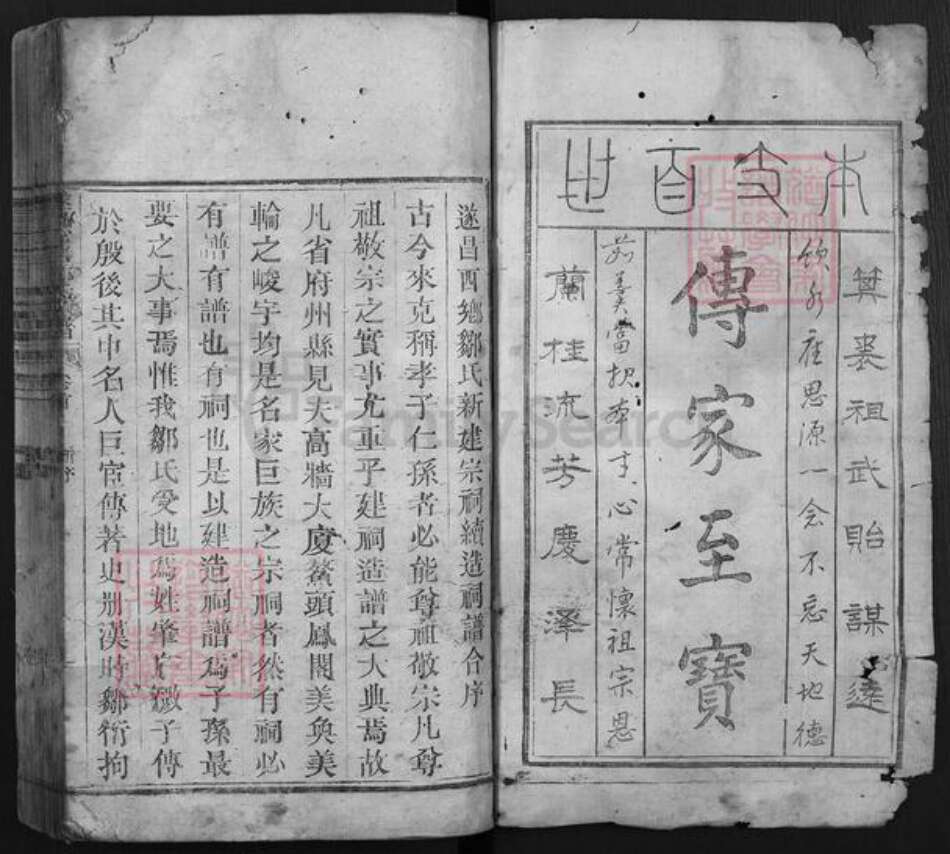 本支百世
箕裘祖武貽謀遠
飲水應思源一念不忘天地德
傳家至寶
羹當報本寸心常懷祖宗恩
蘭桂流芳慶澤長
遂昌西鄉鄒氏新建宗祠續造祠譜合序
古今來克稱孝子仁孫者必能尊祖敬宗凡尊
祖敬宗之實事尤重乎建祠造譜之大典焉故
凡省府州縣見夫高牆大廈鰲頭鳳閣美奐美
輪之峻宇均是名家巨族之宗祠者然有祠必
有譜有譜也有祠也是以建造祠譜為子孫最
要之大事焉惟我鄒氏受地為姓肇自微子傳
於殷後其中名人巨宦傳著史冊漢時鄒衍拘
FamilySearch